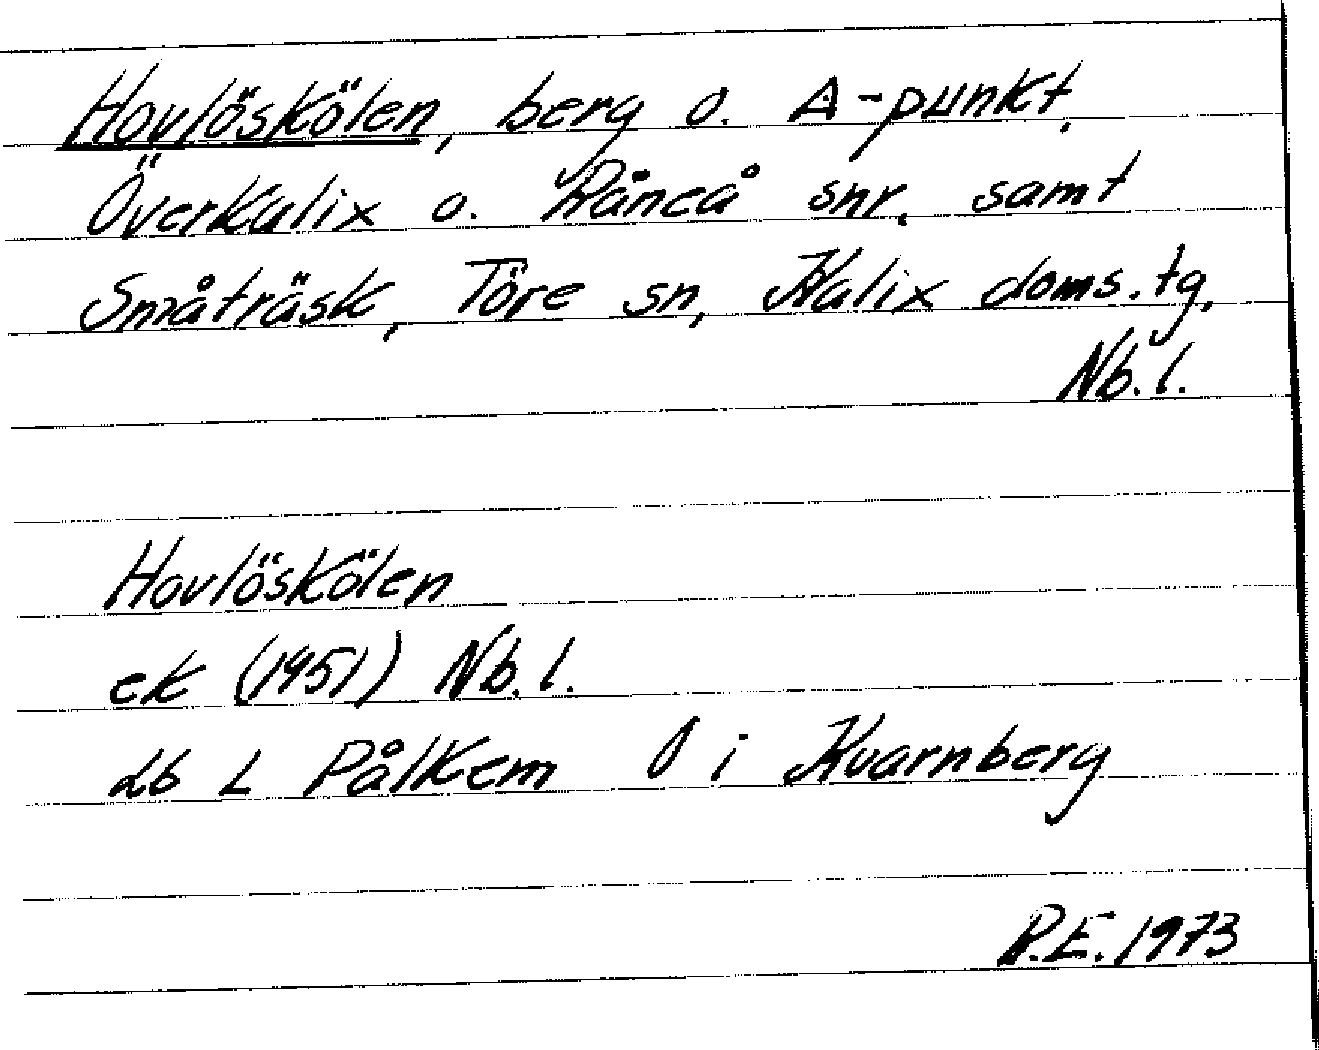 Hovlöskölen, berg o. A-punkt,
Överkalix o. Råneå snr, samt
Småträsk, Töre sn, Kalix doms.tg,
Nb.l.
Hovlöskölen
ek (1951) Nb.l.
db L Pålkem Ö i Kvarnberg
R.E. 1973